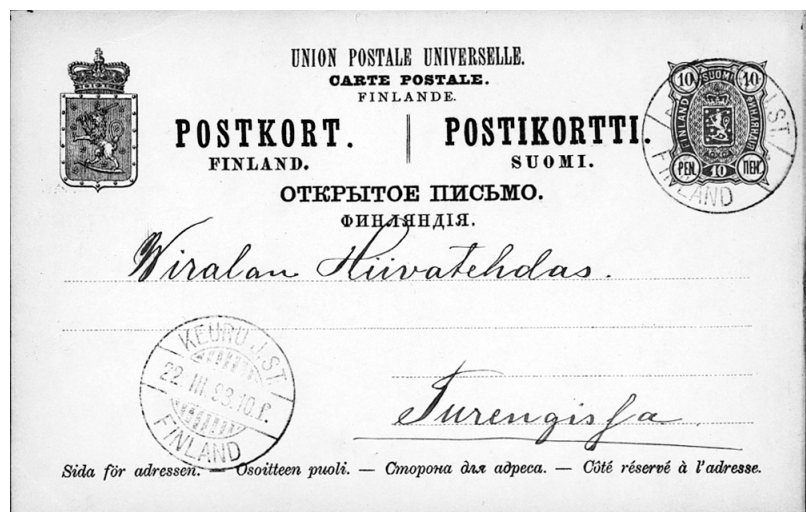 UNION POSTALE UNIVERSELLE.
CARTE POSTALE.
FINLANDE.
POSTKORT. POSTIKORTTI.
FINLAND. SUOMI.
ОТКРЫТОЕ ПИСЬМО.
ФИНЛЯНДІЯ.
10 SUOMI 10
FINLAND
PEN. 10 ПЕН.
J.ST.
FINLAND
Wiralan Hiivatehdas.
KEURU J.ST.
22. III. 93. 10 f.
FINLAND
Turengissa
Sida för adressen. — Osoitteen puoli. — Сторона для адреса. — Côté réservé à l'adresse.